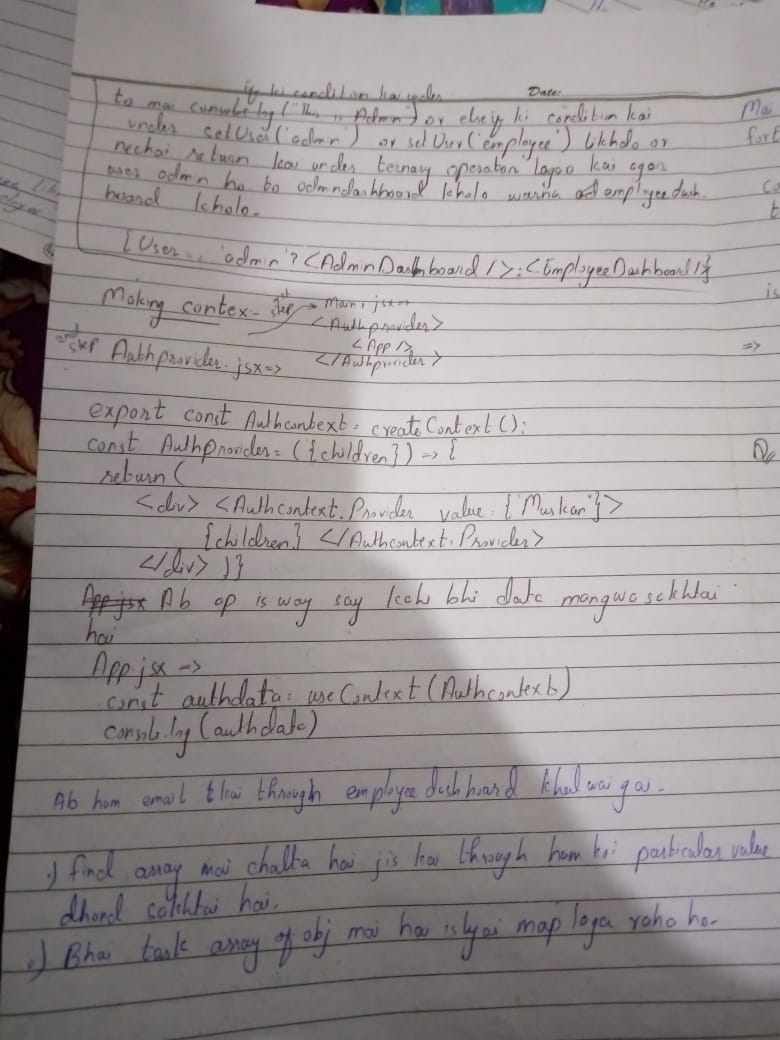 if ki condition kai under
Date:
to mai console.log("This is Admin") or else if ki condition kai
under setUser('admin') or setUser('employee') likhdo or
nechai return kai under ternary operator lagao kai agar
user admin ho to admindashboard kholo warna employee dash
board kholo.
{User == 'admin'? <AdminDashboard />:<EmployeeDashboard/>}
Making contex - 1st step → Main.jsx =>
<Authprovider>
<App />
</Authprovider>
2nd step Authprovider.jsx =>
export const Authcontext = createContext();
const Authprovider = ({children}) => {
return (
<div> <Authcontext.Provider value={'Muskan'}>
{children} </Authcontext.Provider>
</div> )}
Ab ap is way say koi bhi data mangwa sekhtai
hai
App.jsx =>
const authdata = useContext(Authcontext)
console.log(authdata)
Ab ham email kai through employee dashboard khulwai gai.
•) find array mai chalta hai jis kai through ham koi particular value
dhond sakhtai hai.
•) Bhai task array of obj mai hai islyai map laga raha ho.
Mai
is
=>